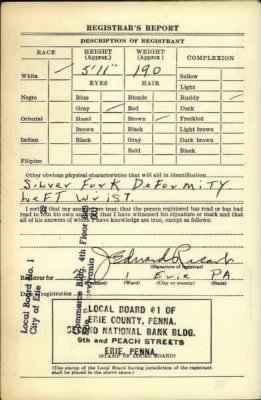 REGISTRAR'S REPORT
DESCRIPTION OF REGISTRANT
RACE HEIGHT (Approx.) WEIGHT (Approx.) COMPLEXION
White 5'11" 190 Sallow
EYES HAIR Light
Negro Blue Blonde Ruddy
Gray Red Dark
Oriental Hazel Brown Freckled
Brown Black Light brown
Indian Black Gray Dark brown
Bald Black
Filipino
Other obvious physical characteristics that will aid in identification
Silver Fork Deformity
Left Wrist.
I certify that my answers are true; that the person registered has read or has had
read to him his own answers; that I have witnessed his signature or mark and that
all of his answers of which I have knowledge are true, except as follows:
J Edward
(Signature of registrar)
Registrar for 1 Erie PA
(Ward) (City or county) (State)
Date of registration
Local Board No. 1
City of Erie
Commerce Bldg. 4th Floor
LOCAL BOARD #1 OF
ERIE COUNTY, PENNA.
SECOND NATIONAL BANK BLDG.
9th and PEACH STREETS
ERIE, PENNA.
(STAMP OF LOCAL BOARD)
(The stamp of the Local Board having jurisdiction of the registrant
shall be placed in the above space.)